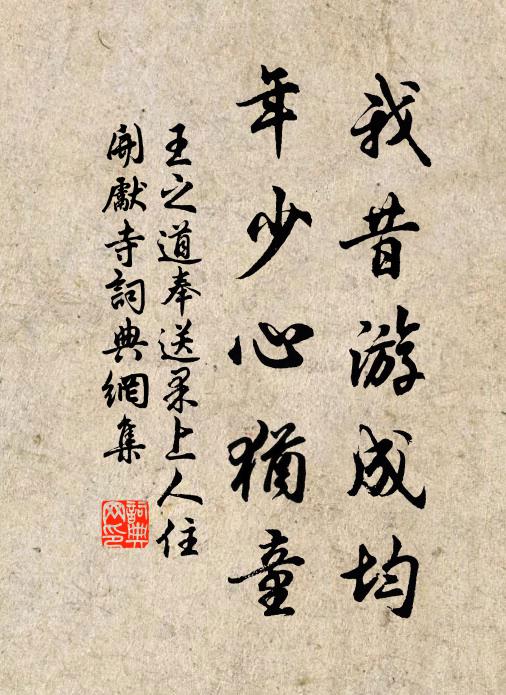 我昔游成均
年少心猶童
王之道奉送果上人住
開獻寺詞典網集
詞典網印